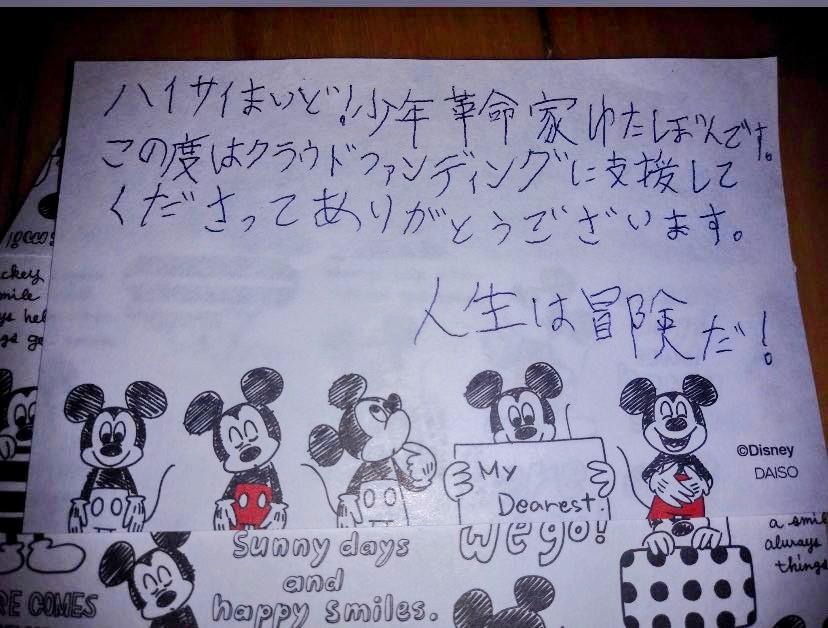 ハイサイまいど!少年革命家ゆたぼんです。
この度はクラウドファンディングに支援して
くださってありがとうございます。
人生は冒険だ!
©Disney
DAISO
My
Dearest.
ckey
smile
ys hel
gs ge
we go!
Sunny days
and
happy smiles.
a smile
always
things
RE COMES